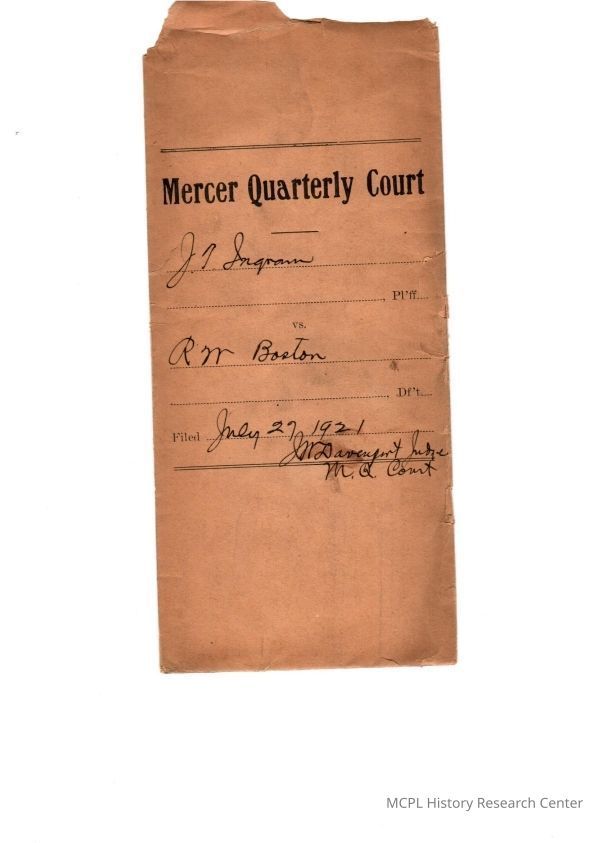 Mercer Quarterly Court
J. T. Ingram
Pl'ff.
vs.
R W Boston
Df't.
Filed July 27, 1921
J W Davenport Judge
M. Q. Court
MCPL History Research Center